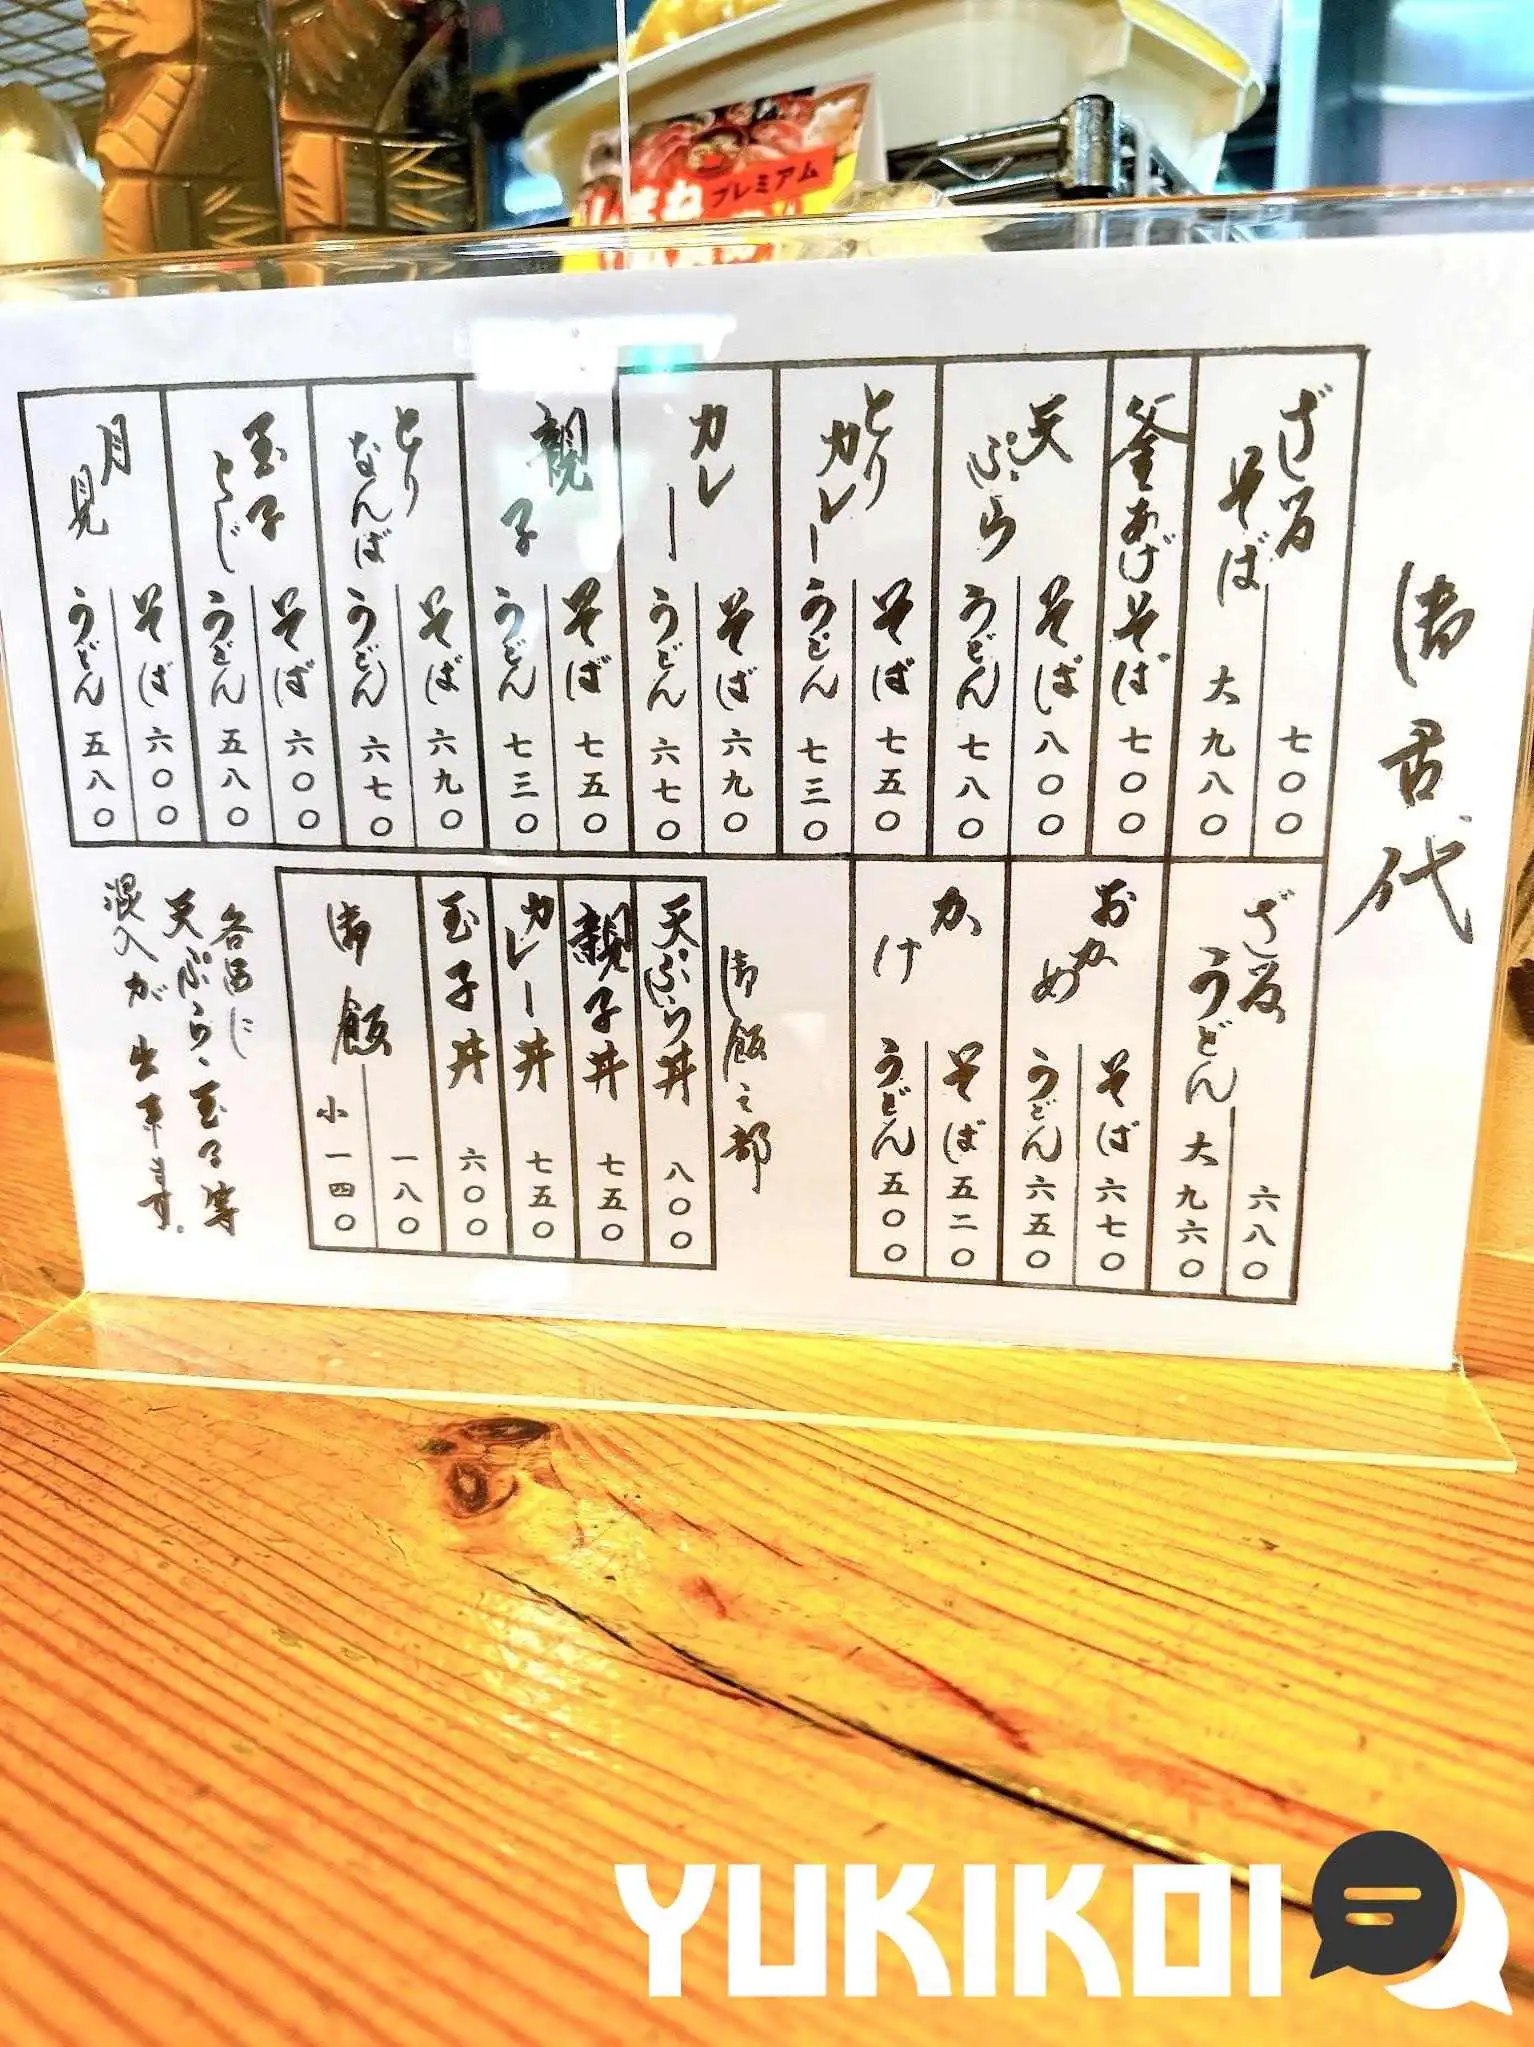 しまね
プレミアム
御君代
ざるそば 七〇〇
大 九八〇
釜あげそば 七〇〇
天ぷら
そば 八〇〇
うどん 七八〇
とりカレー
そば 七五〇
うどん 七三〇
カレー
そば 六九〇
うどん 六七〇
親子
そば 七五〇
うどん 七三〇
とりなんば
そば 六九〇
うどん 六七〇
玉子とじ
そば 六〇〇
うどん 五八〇
月見
そば 六〇〇
うどん 五八〇
ざるうどん 六八〇
大 九六〇
おかめ
そば 六七〇
うどん 六五〇
かけ
そば 五二〇
うどん 五〇〇
御飯之部
天ぷら丼 八〇〇
親子丼 七五〇
カレー丼 七五〇
玉子丼 六〇〇
御飯 一八〇
小 一四〇
各品に
天ぷら、玉子等
混入が出来ます。
YUKIKOI